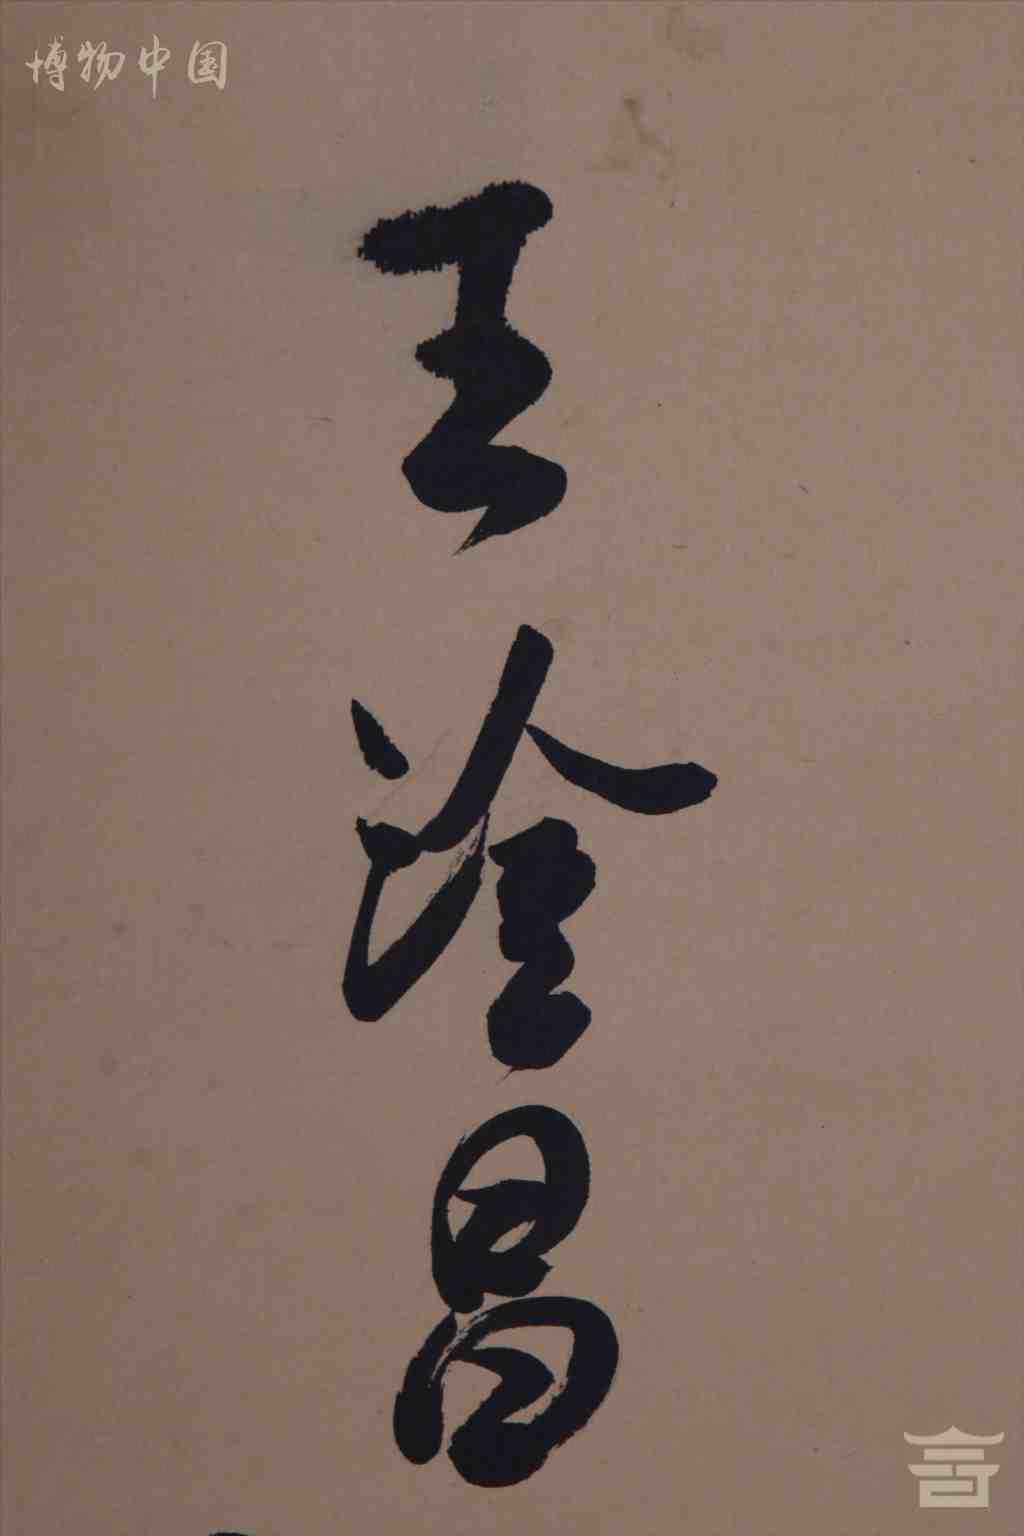 博物中国
王淦昌